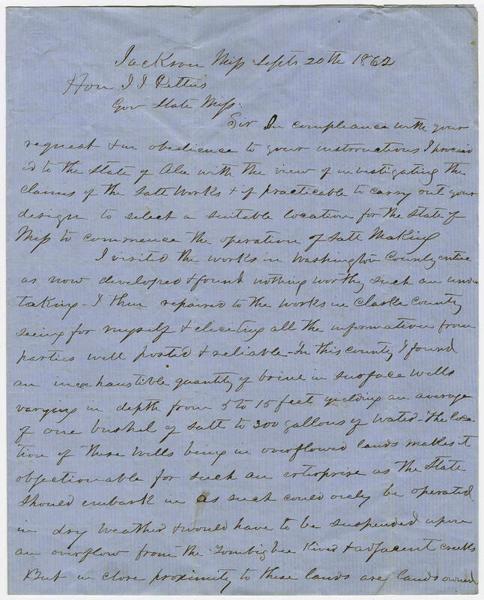 Jackson Miss Septr 20th 1862
Hon J J Pettus
Gov State Miss.
Sir In compliance with your
request & in obedience to your instructions I proceed
ed to the State of Ala with the view of investigating the
claims of the Salt Works & if practicable to carry out your
design to select a suitable location for the State of
Miss to commence the operation of Salt Making
I visited the works in Washington County
as now developed & found nothing worthy such an under
taking. I then repaired to the works in Clarke County
seeing for myself & eliciting all the information from
parties well posted & reliable - In this county I found
an inexhaustible quantity of brine in surface wells
varying in depth from 5 to 15 feet yielding an average
of one bushel of salt to 300 gallons of water the loca
tion of these wells being in overflowed lands makes it
objectionable for such an enterprise as the State
should embark in as such could only be operated
in dry weather & would have to be suspended upon
an overflow from the Tombigbee River & adjacent creeks
But in close proximity to these lands are lands owned